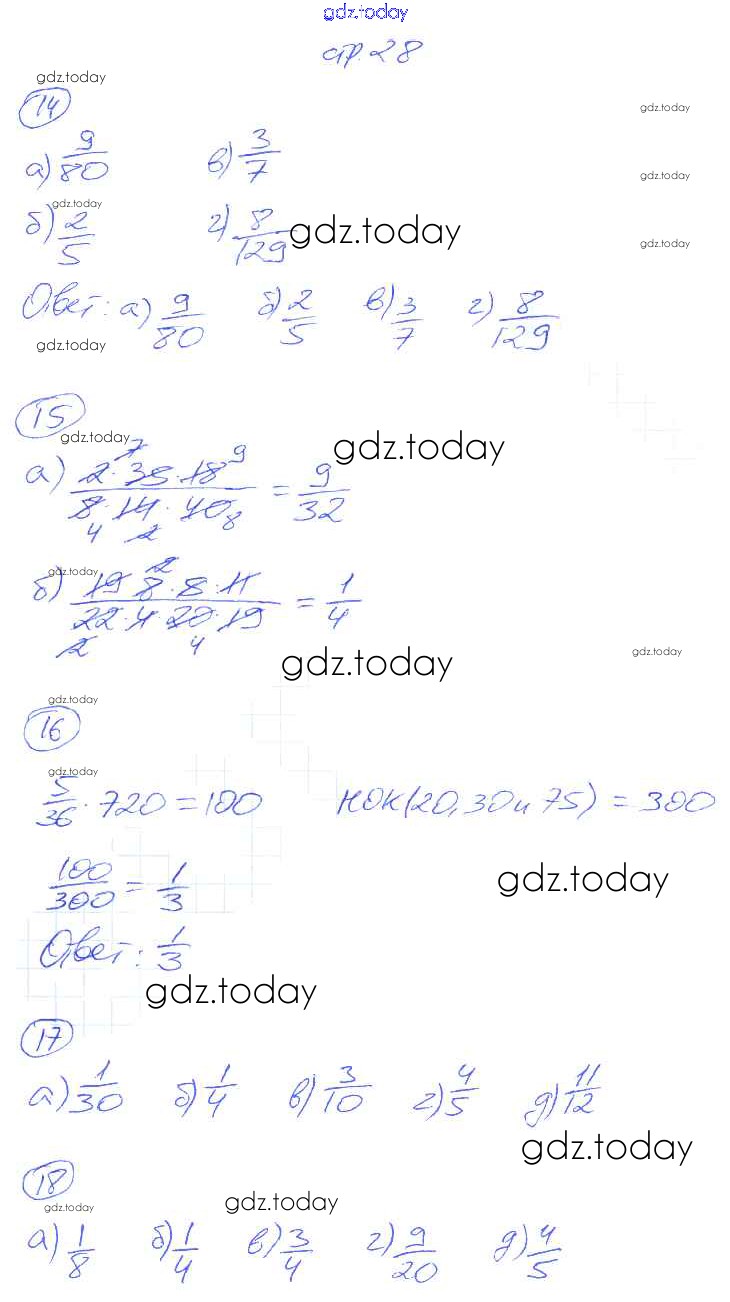 gdz.today
стр. 28
gdz.today
14
gdz.today
а) 9/80 в) 3/7
gdz.today
gdz.today
б) 2/5 г) 8/129
gdz.today
gdz.today
Ответ: а) 9/80 б) 2/5 в) 3/7 г) 8/129
gdz.today
15
gdz.today
gdz.today
а) (2 · 35 · 18)/(8 · 14 · 40) = 9/32
7 9
4 2 8
gdz.today
б) (19 · 8 · 8 · 11)/(22 · 4 · 20 · 19) = 1/4
2
2 4
gdz.today
gdz.today
gdz.today
16
gdz.today
5/36 · 720 = 100 НОК(20, 30 и 75) = 300
100/300 = 1/3
gdz.today
Ответ: 1/3
gdz.today
17
а) 1/30 б) 1/4 в) 3/10 г) 4/5 д) 11/12
gdz.today
18
gdz.today
gdz.today
а) 1/8 б) 1/4 в) 3/4 г) 9/20 д) 4/5